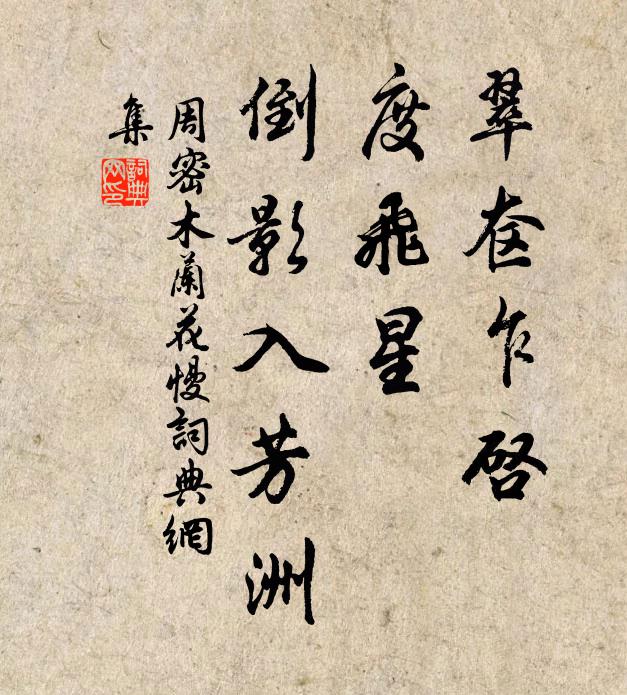 翠奁乍啓
度飛星
倒影入芳洲
周密木蘭花慢詞典網
集
詞典
网印